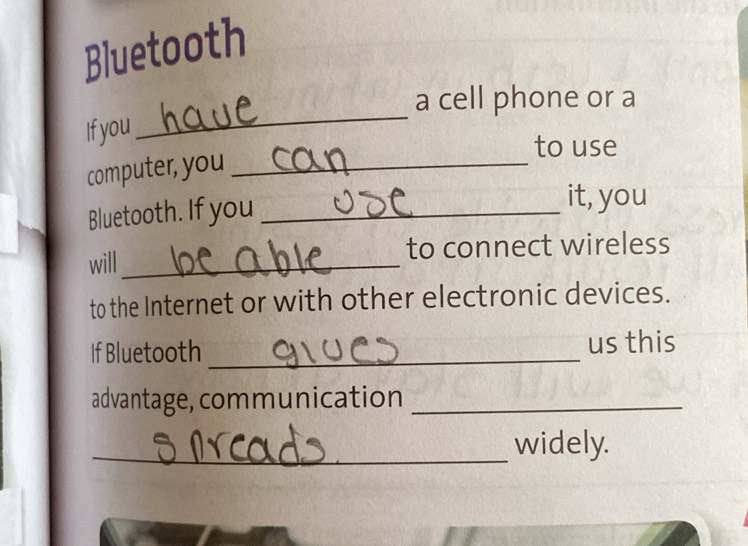 Bluetooth
If you have a cell phone or a
computer, you can to use
Bluetooth. If you use it, you
will be able to connect wireless
to the Internet or with other electronic devices.
If Bluetooth gives us this
advantage, communication
spreads widely.